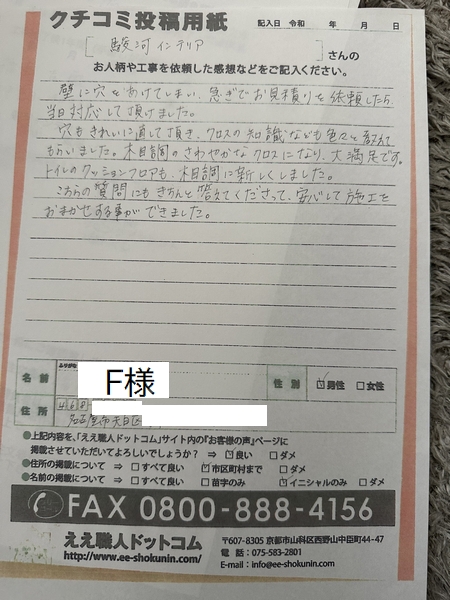 クチコミ投稿用紙
記入日 令和 年 月 日
[ 駿河インテリア ] さんの
お人柄や工事を依頼した感想などをご記入ください。
壁に穴をあけてしまい、急ぎでお見積りを依頼したら、
当日対応して頂けました。
穴もきれいに直して頂き、クロスの知識なども色々と教えて
もらいました。木目調のさわやかなクロスになり、大満足です。
トイレのクッションフロアも、木目調に新しくしました。
こちらの質問にもきちんと答えてくださって、安心して施工を
おまかせする事ができました。
ふりがな
名前 F様 性別 ☑男性 □女性
住所 468
名古屋市天白区
●上記内容を、「ええ職人ドットコム」サイト内の『お客様の声』ページに
掲載させていただいてよろしいでしょうか？ ⇒ ☑良い □ダメ
●住所の掲載について ⇒ □すべて良い ☑市区町村まで □ダメ
●名前の掲載について ⇒ □すべて良い □苗字のみ ☑イニシャルのみ □ダメ
FAX 0800-888-4156
ええ職人ドットコム
http://www.ee-shokunin.com/
〒607-8305 京都市山科区西野山中臣町44-47
電話：075-583-2801
E-mail：info@ee-shokunin.com